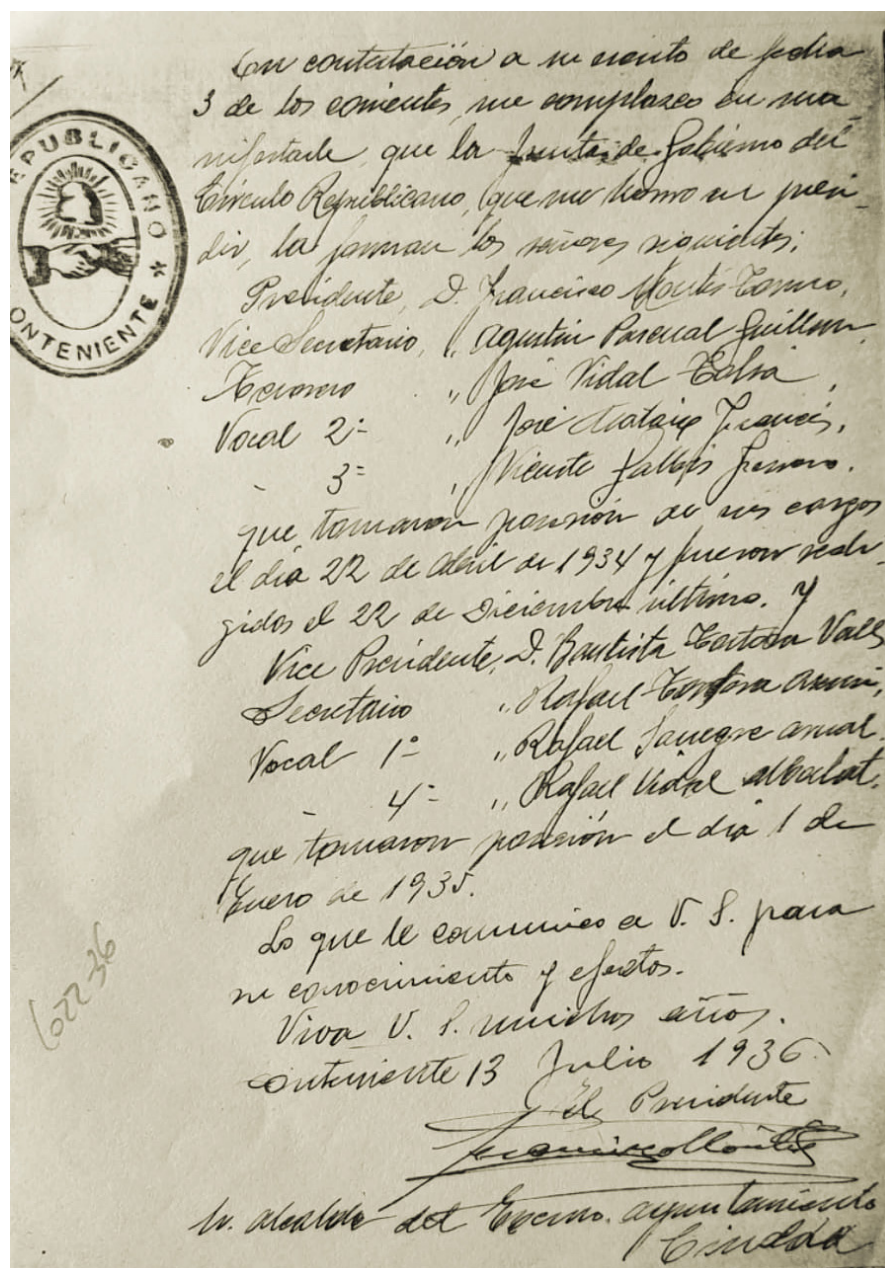 En contestación a su escrito de fecha
3 de los corrientes, me complazco en ma
nifestarle, que la Junta de Gobierno del
Círculo Republicano, que me honro en presi-
dir, la forman los señores siguientes;
Presidente, D. Francisco Montés
Vice Secretario, " Agustín Pascual Guillem,
Tesorero " José Vidal
Vocal 2º " José Mataix Francés,
- 3º " Vicente
que tomaron posesión de sus cargos
el día 22 de Abril de 1934 y fueron reele-
gidos el 22 de Diciembre último. Y
Vice Presidente, D. Bautista Tortosa Valls
Secretario " Rafael Tortosa
Vocal 1º " Rafael
- 4º " Rafael Vidal Albalat.
que tomaron posesión el día 1 de
Enero de 1935.
Lo que le comunico a V. S. para
su conocimiento y efectos.
Viva V. S. muchos años.
Onteniente 13 Julio 1936.
El Presidente
Francisco Montés
Sr. Alcalde del Excmo. Ayuntamiento
Ciudad
REPUBLICANO
ONTENIENTE